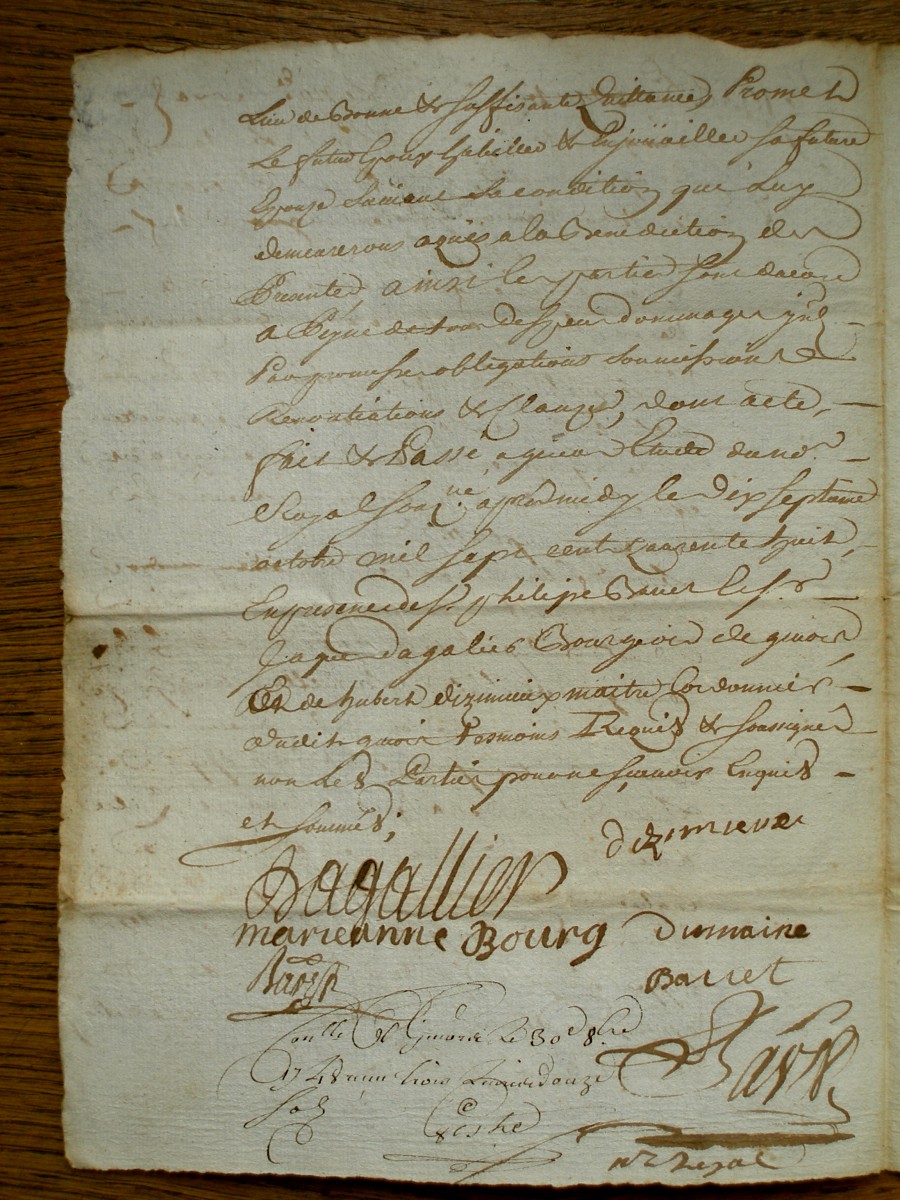 Lieu de Bonne & suffisante Quittance, Promet
Le futur Epoux habiller & Enjoüailler sa future
Epouze suivant sa condition que Luy
demeureront aquis a la Benediction des
Presentes, ainsi les parties sont dacord
a Peyne de tous despens dommages
Par promesses obligations soumissions
Renontiations & Clauzes, dont acte,
fait & Passé a Etude du no.re
Royal soq.ne apres midy le Dix septieme
octobre mil sept cent quarente huit,
En presence de s.r philipe Bavet le s.r
Jaque dagalier Bourgeois de
Et de hubert dizimieux maitre Cordonnier
dudit temoins Requis & soussignés
non Les Parties pour ne scavoir Enquis
et sommés;
dizimieux
Dagallier
marieanne Bourg Dumaine
Bavet
Conllé le 30e 8bre
1748 reçu trois Livres douze
sols
n.re Royal